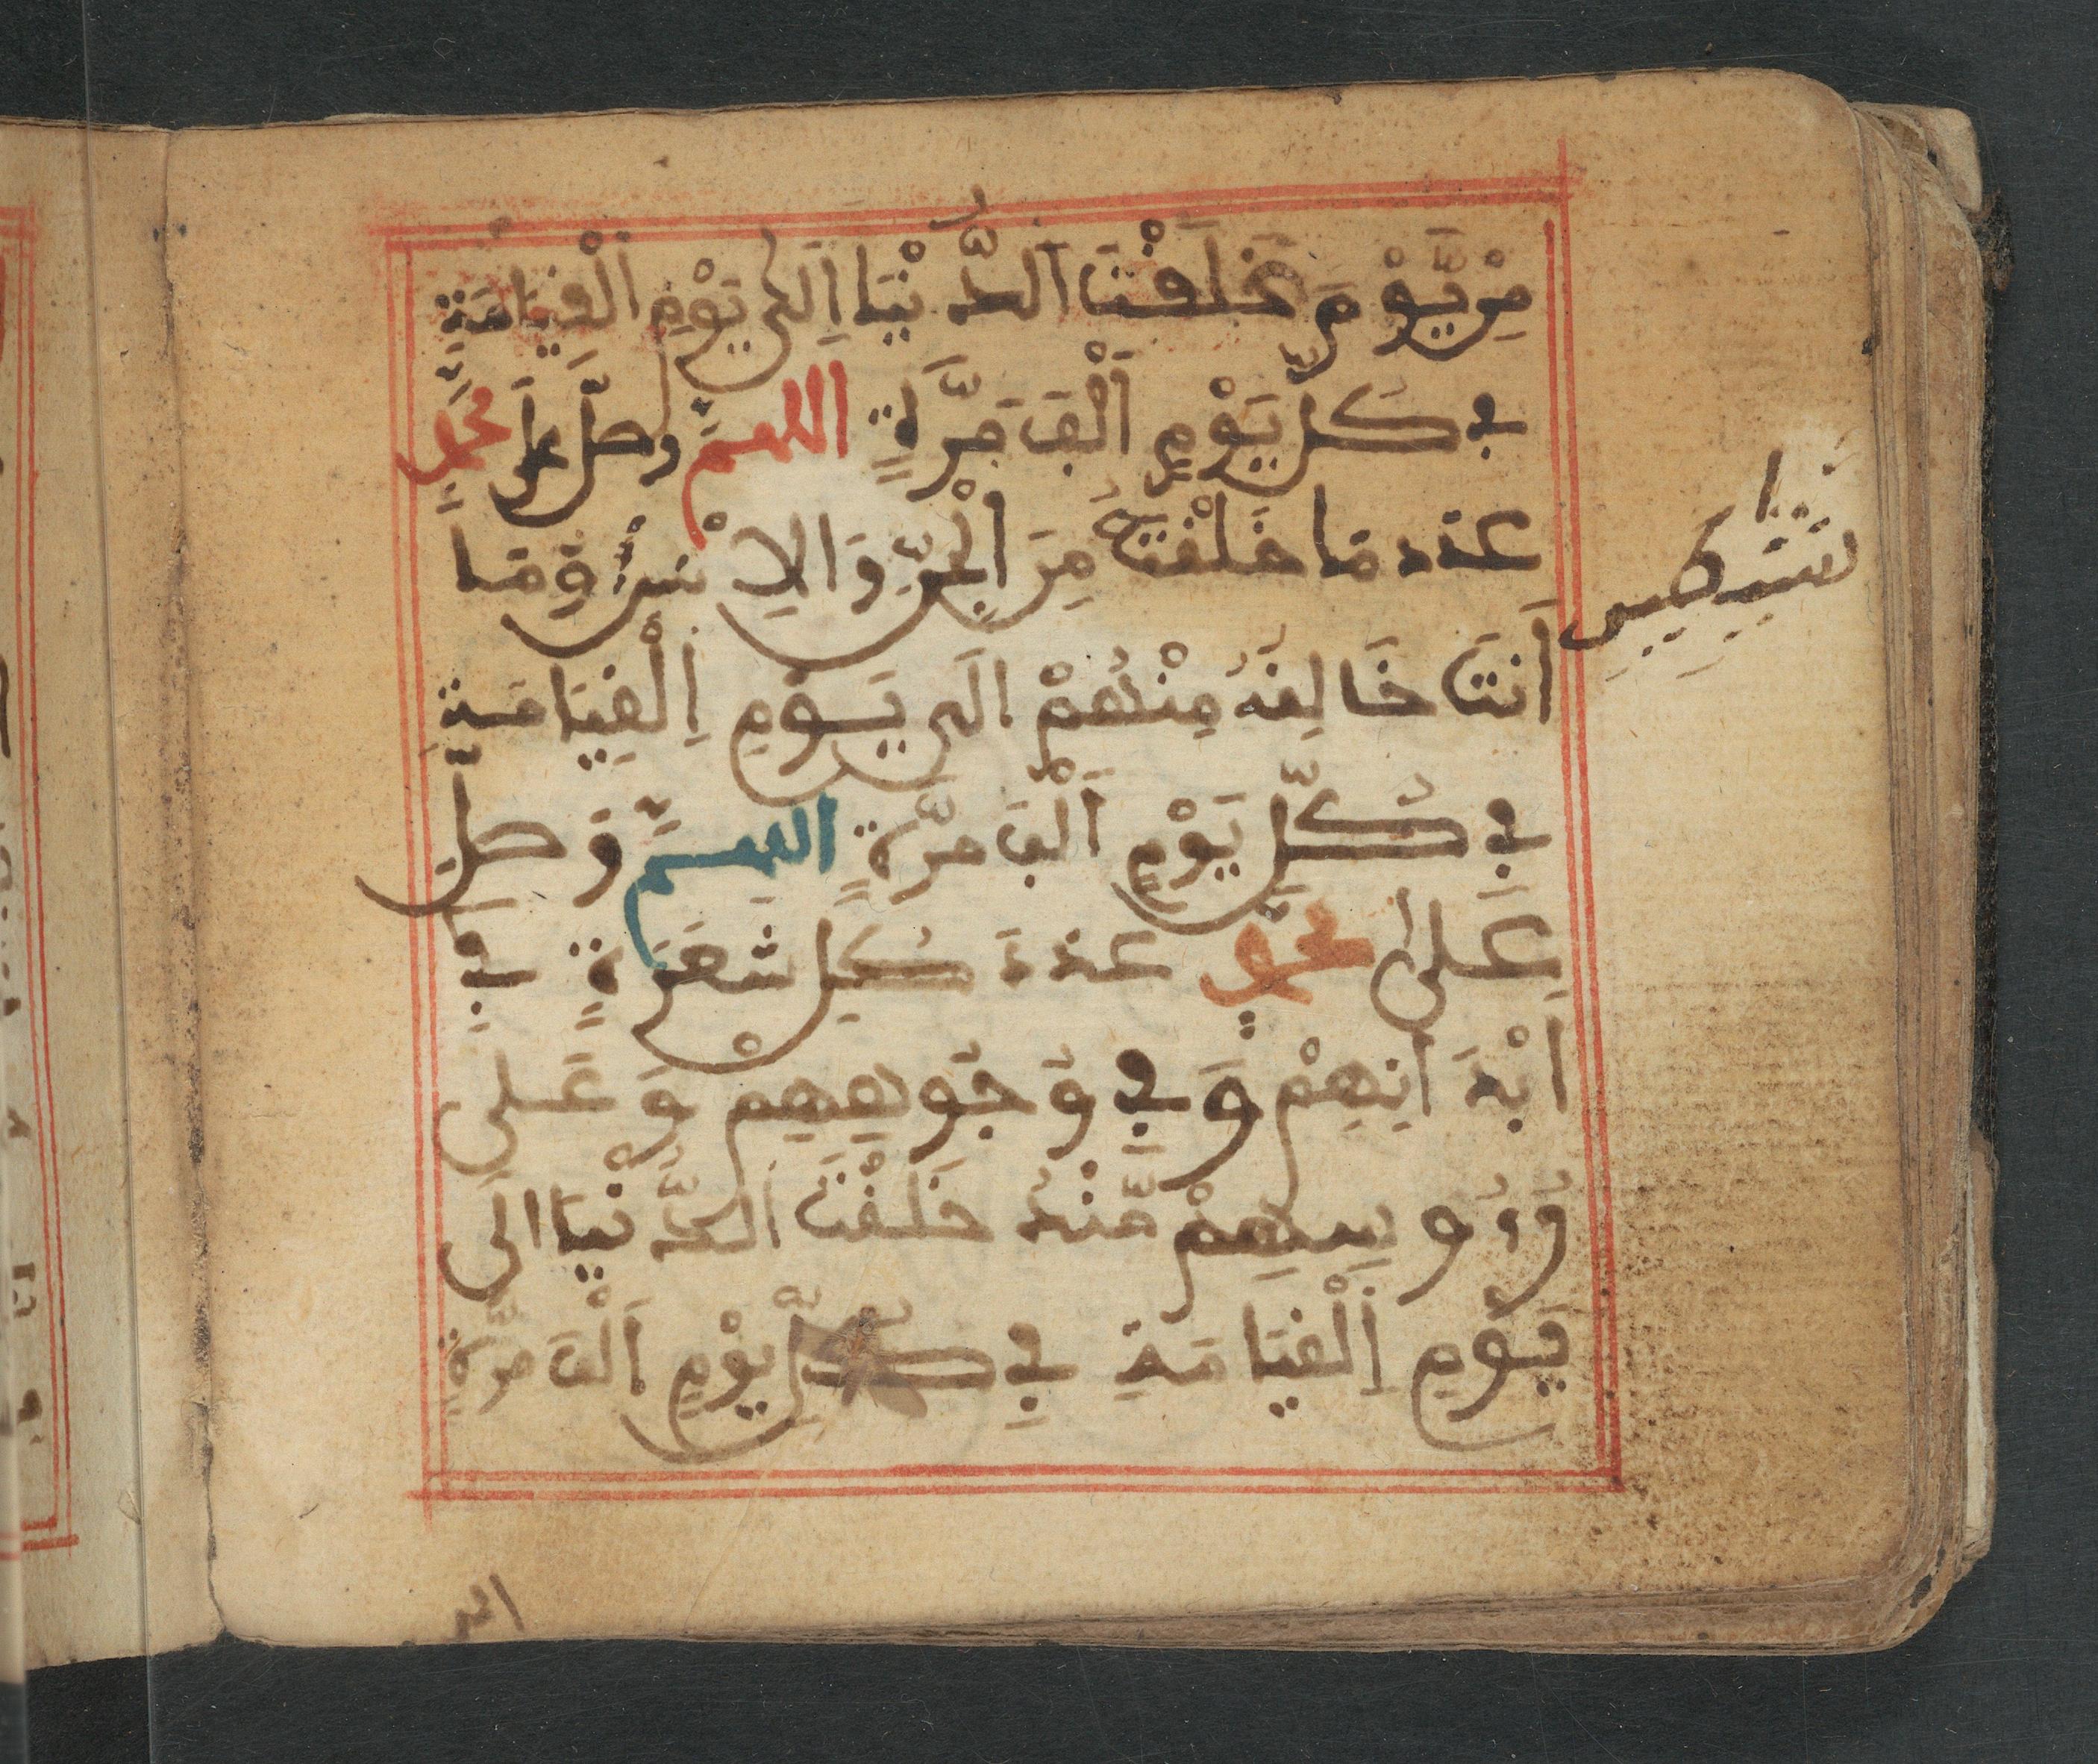 مِنْ يَّوْمَ خَلَقْتَ اَلدُّنْيَا اِلَىٰ يَوْمِ اِلْقِيَامَةِ
فِى كُلِّ يَوْمٍ اَلْفَ مَرَّةٍ اللهم وصلّ على محمدٍ
عدد ما خَلَقْتَهُ مِنَ اَلْجِنِّ وَالاِنْسِ وَمَا
اَنتَ خَالِقُهُ مِنْهُمْ الى يَوْمِ اِلْقِيَامَةِ
فِى كُلِّ يَوْمٍ اَلْفَ مرَّةٍ اللهم وَصلِّ
عَلىٰ محمدٍ عَدَدَ كُلِّ شَعَرَةٍ فِى
اَبْدَانِهِمْ وَفِى وُجُوهِهِمْ وَعَلى
رُءُوسِهِمْ مُّنْذُ خَلَقْتَ اَلدُّنْيَا الَى
يَوْمِ اِلْقِيَامَةِ فِى كُلِّ يَوْمٍ اَلْفَ مرَّةٍ